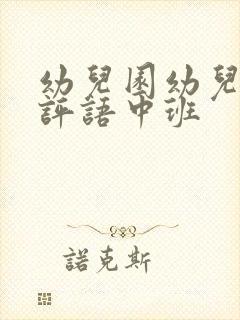 幼兒園幼兒
評語中班
諾克斯